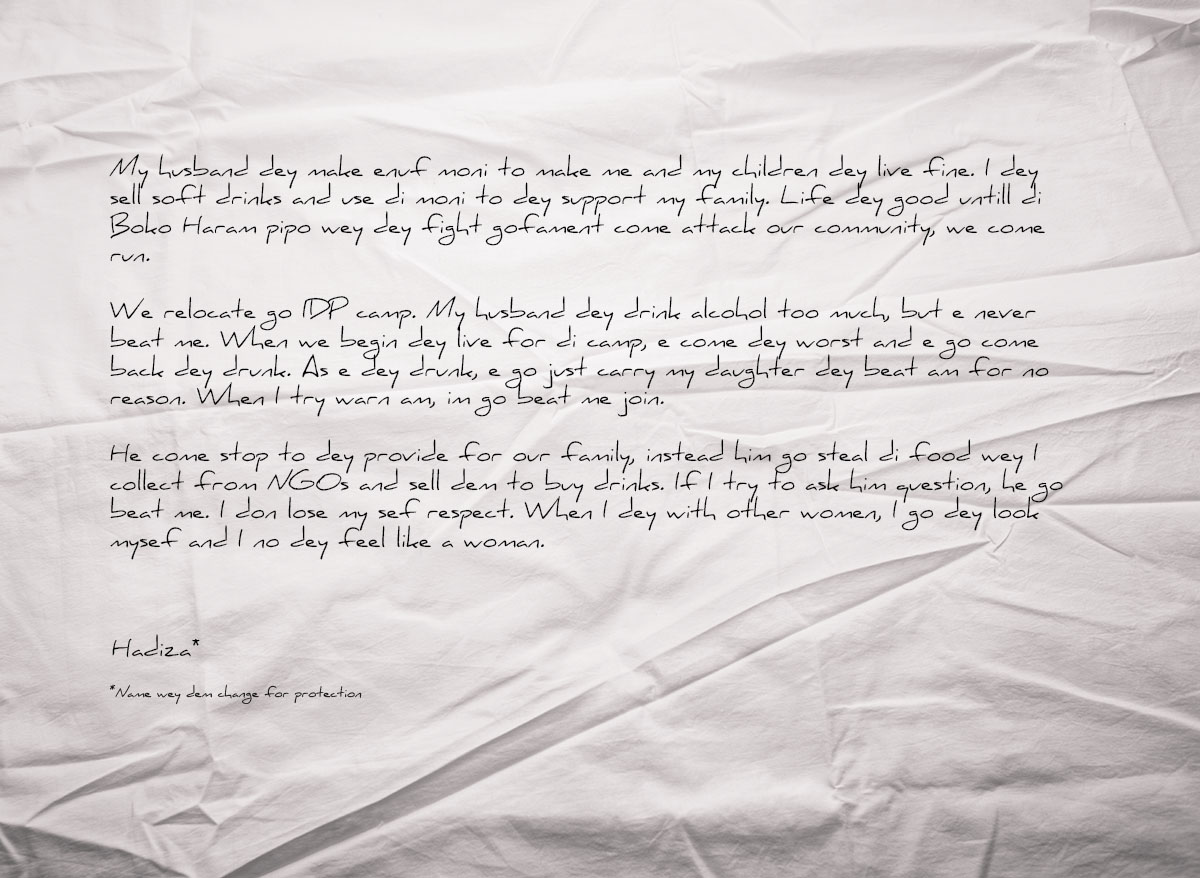 My husband dey make enuf moni to make me and my children dey live fine. I dey
sell soft drinks and use di moni to dey support my family. Life dey good untill di
Boko Haram pipo wey dey fight gofament come attack our community, we come
run.
We relocate go IDP camp. My husband dey drink alcohol too much, but e never
beat me. When we begin dey live for di camp, e come dey worst and e go come
back dey drunk. As e dey drunk, e go just carry my daughter dey beat am for no
reason. When I try warn am, im go beat me join.
He come stop to dey provide for our family, instead him go steal di food wey I
collect from NGOs and sell dem to buy drinks. If I try to ask him question, he go
beat me. I don lose my sef respect. When I dey with other women, I go dey look
mysef and I no dey feel like a woman.
Hadiza*
*Name wey dem change for protection